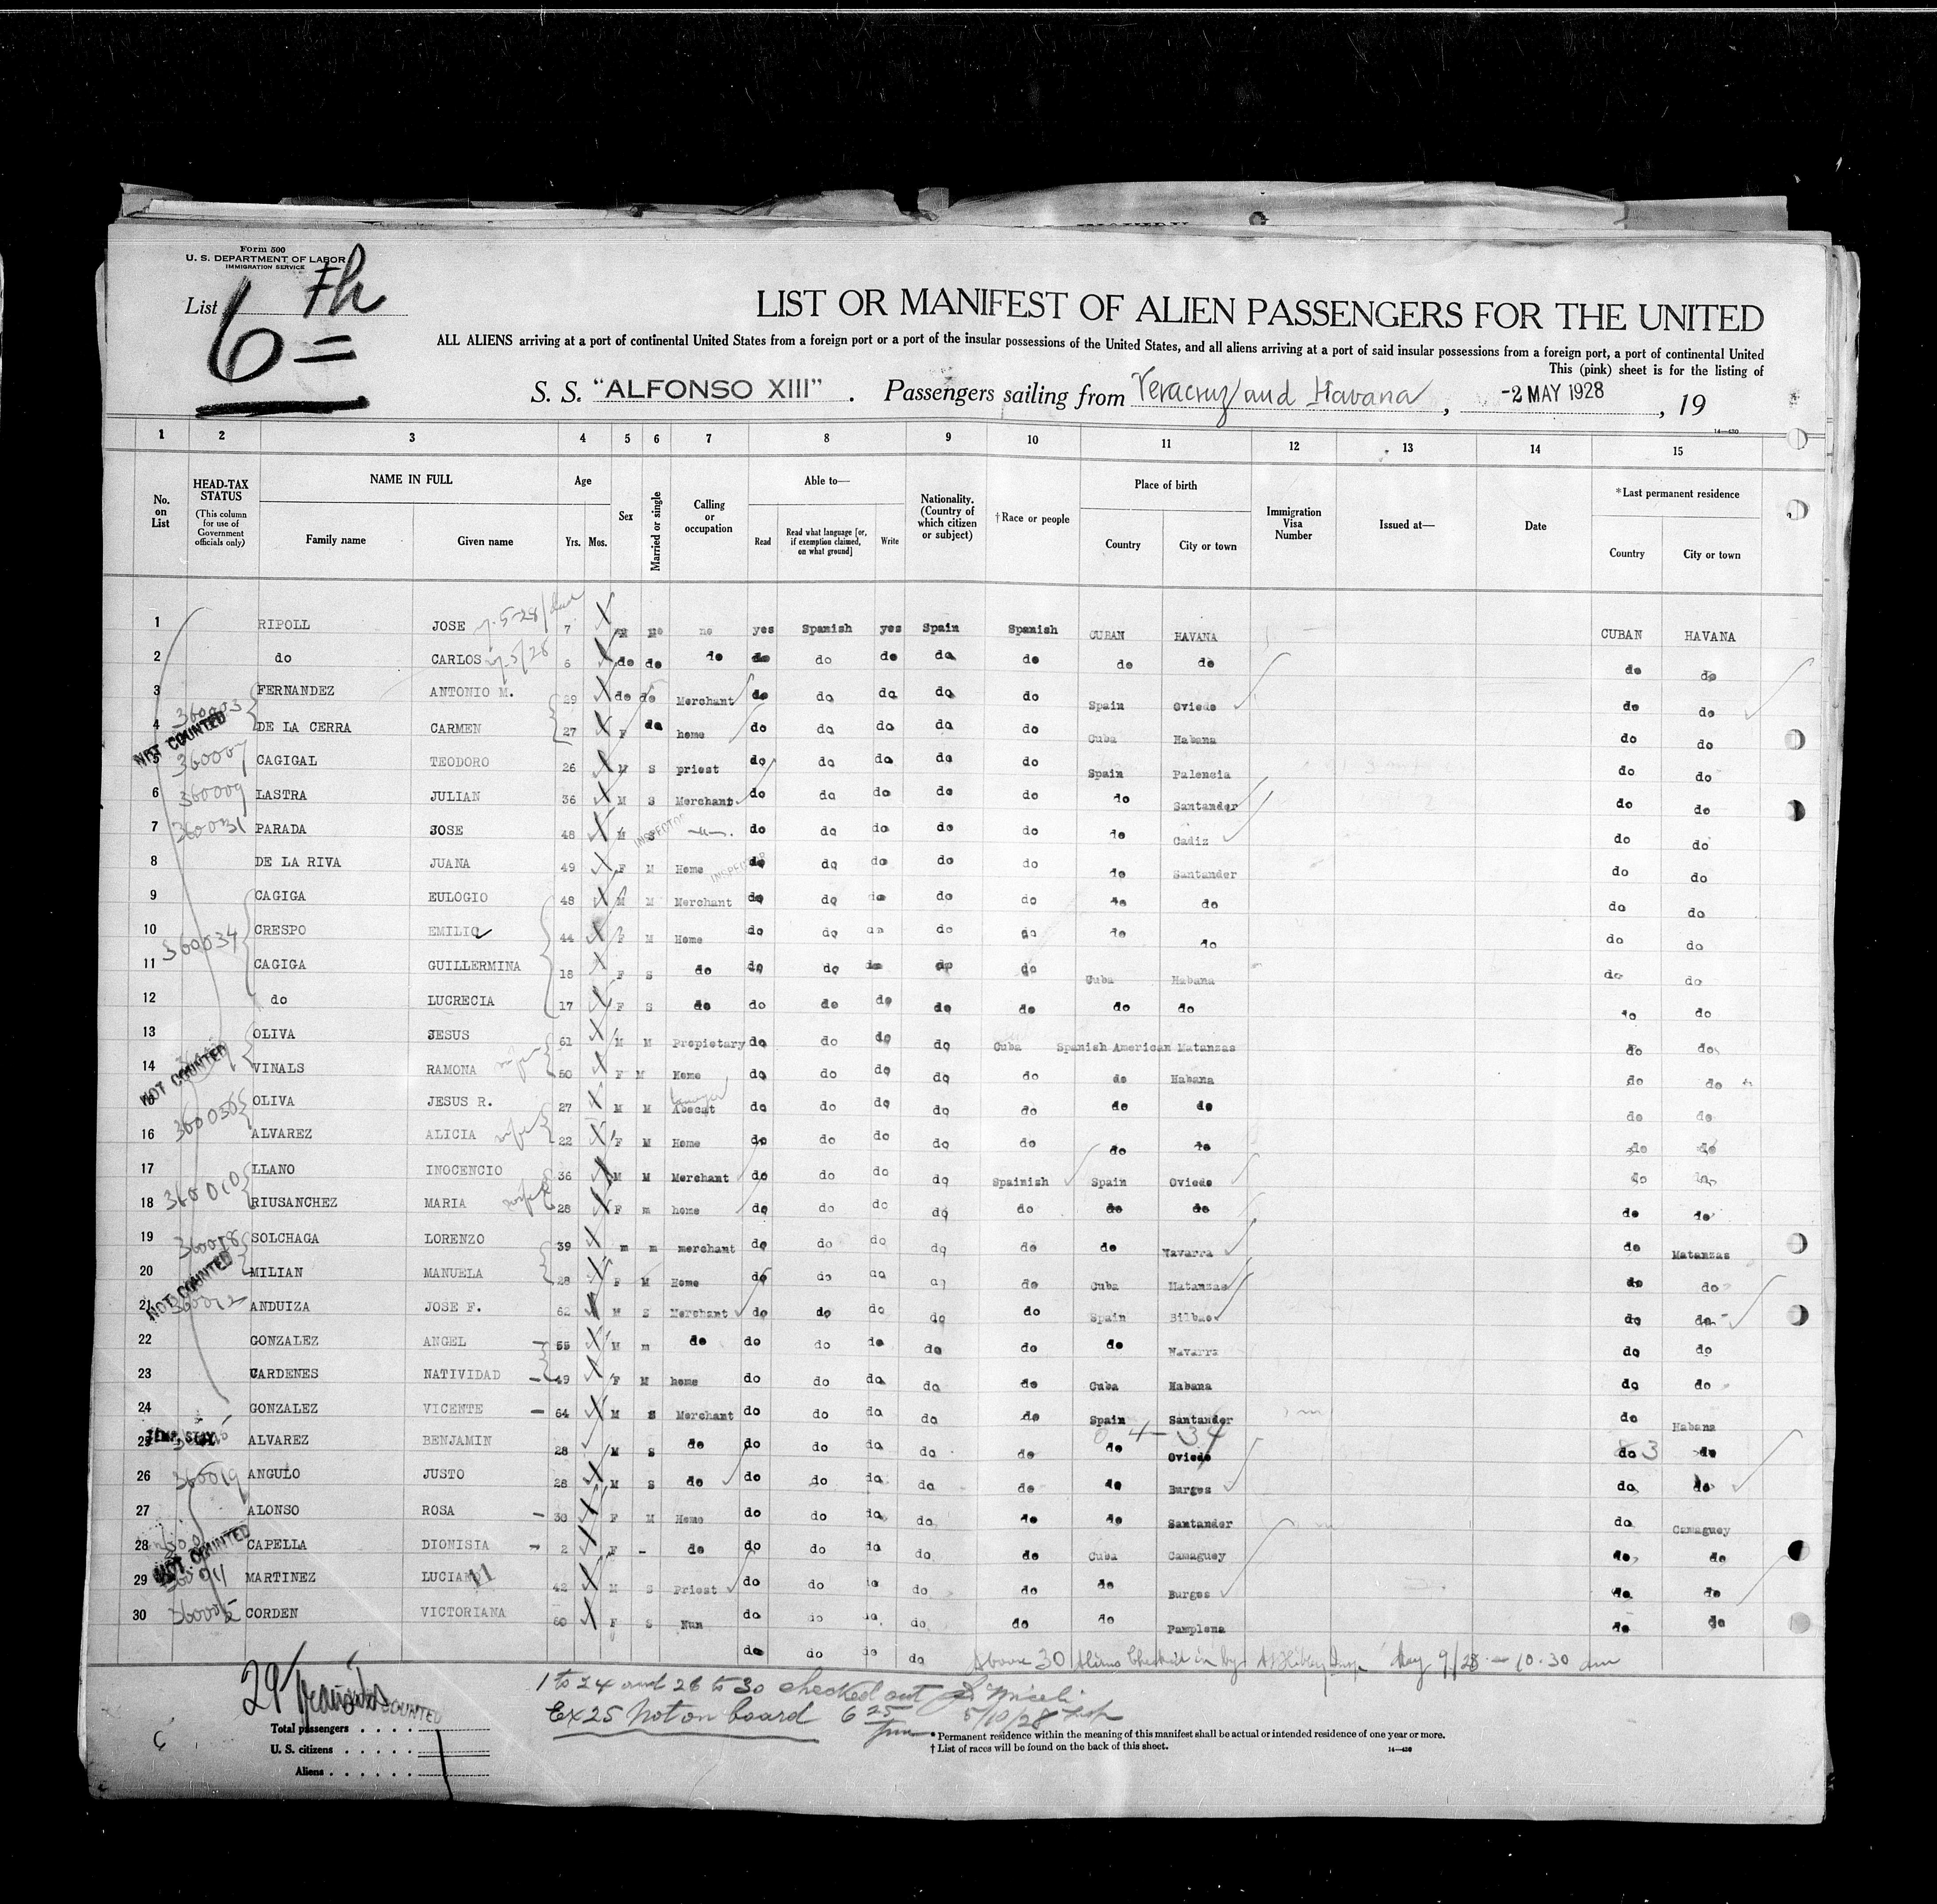 Form 500
U. S. DEPARTMENT OF LABOR
IMMIGRATION SERVICE
List 6th =
LIST OR MANIFEST OF ALIEN PASSENGERS FOR THE UNITED
ALL ALIENS arriving at a port of continental United States from a foreign port or a port of the insular possessions of the United States, and all aliens arriving at a port of said insular possessions from a foreign port, a port of continental United
This (pink) sheet is for the listing of
S. S. "ALFONSO XIII". Passengers sailing from Veracruz and Havana, -2 MAY 1928, 19
14—430
1 2 3 4 5 6 7 8 9 10 11 12 13 14 15
No. on List
HEAD-TAX STATUS (This column for use of Government officials only)
NAME IN FULL Family name Given name
Age Yrs. Mos.
Sex
Married or single
Calling or occupation
Able to— Read Read what language [or, if exemption claimed, on what ground] Write
Nationality. (Country of which citizen or subject)
†Race or people
Place of birth Country City or town
Immigration Visa Number
Issued at—
Date
*Last permanent residence Country City or town
1 RIPOLL JOSE 7 yes Spanish yes Spain Spanish CUBAN HAVANA CUBAN HAVANA
2 do CARLOS 6 do do do do do do do do do do do do
3 FERNANDEZ ANTONIO M. 29 do do Merchant do do do do do Spain Oviedo do do
4 360003 NOT COUNTED DE LA CERRA CARMEN 27 F do home do do do do do Cuba Habana do do
5 360007 CAGIGAL TEODORO 26 M S priest do do do do do Spain Palencia do do
6 360009 LASTRA JULIAN 36 M S Merchant do do do do do do Santander do do
7 360031 PARADA JOSE 48 M S INSPECTOR do do do do do do Cadiz do do
8 DE LA RIVA JUANA 49 F M Home INSPECTOR do do do do do do Santander do do
9 CAGIGA EULOGIO 48 M M Merchant do do do do do do do do do
10 360034 CRESPO EMILIO 44 F M Home do do do do do do do do do
11 CAGIGA GUILLERMINA 18 F S do do do do do do Cuba Habana do do
12 do LUCRECIA 17 F S do do do do do do do do do do
13 OLIVA JESUS 61 M M Propietary do do do do Cuba Spanish American Matanzas do do
14 NOT COUNTED VINALS RAMONA wife 50 F M Home do do do do do do Habana do do
15 OLIVA JESUS R. 27 M M Abocat lawyer do do do do do do do do do
16 ALVAREZ ALICIA wife 22 F M Home do do do do do do do do do
17 LLANO INOCENCIO 36 M M Merchant do do do do Spainish Spain Oviedo do do
18 360010 RIUSANCHEZ MARIA wife 28 F m home do do do do do do do do do
19 SOLCHAGA LORENZO 39 m m merchant do do do do do do Navarra do Matanzas
20 NOT COUNTED MILIAN MANUELA 28 F M Home do do do do do Cuba Matanzas do do
21 360012 ANDUIZA JOSE F. 62 M S Merchant do do do do do Spain Bilbao do do
22 GONZALEZ ANGEL 55 M m do do do do do do do Navarra do do
23 CARDENES NATIVIDAD 49 F M home do do do do do Cuba Habana do do
24 GONZALEZ VICENTE 64 M S Merchant do do do do do Spain Santander do Habana
25 TEMP. STAY ALVAREZ BENJAMIN 28 M S do do do do do do do Oviedo do do
26 360019 ANGULO JUSTO 28 M S do do do do do do do Burgos do do
27 ALONSO ROSA 30 F M Home do do do do do do Santander do Camaguey
28 NOT COUNTED CAPELLA DIONISIA 2 F - do do do do do do Cuba Camaguey do do
29 MARTINEZ LUCIANO 11 42 M S Priest do do do do do do Burgos do do
30 CORDEN VICTORIANA 60 F S Nun do do do do do do Pamplona do do
do do do do
Above 30 Aliens Checked in by May 9/28 — 10.30 am
29 Transits COUNTED
1 to 24 and 26 to 30 checked out Miceli
Ex 25 Not on board 6 25 pm 5/10/28
Total passengers . . . .
U. S. citizens . . . . .
Aliens . . . . . .
* Permanent residence within the meaning of this manifest shall be actual or intended residence of one year or more.
† List of races will be found on the back of this sheet.
14—430